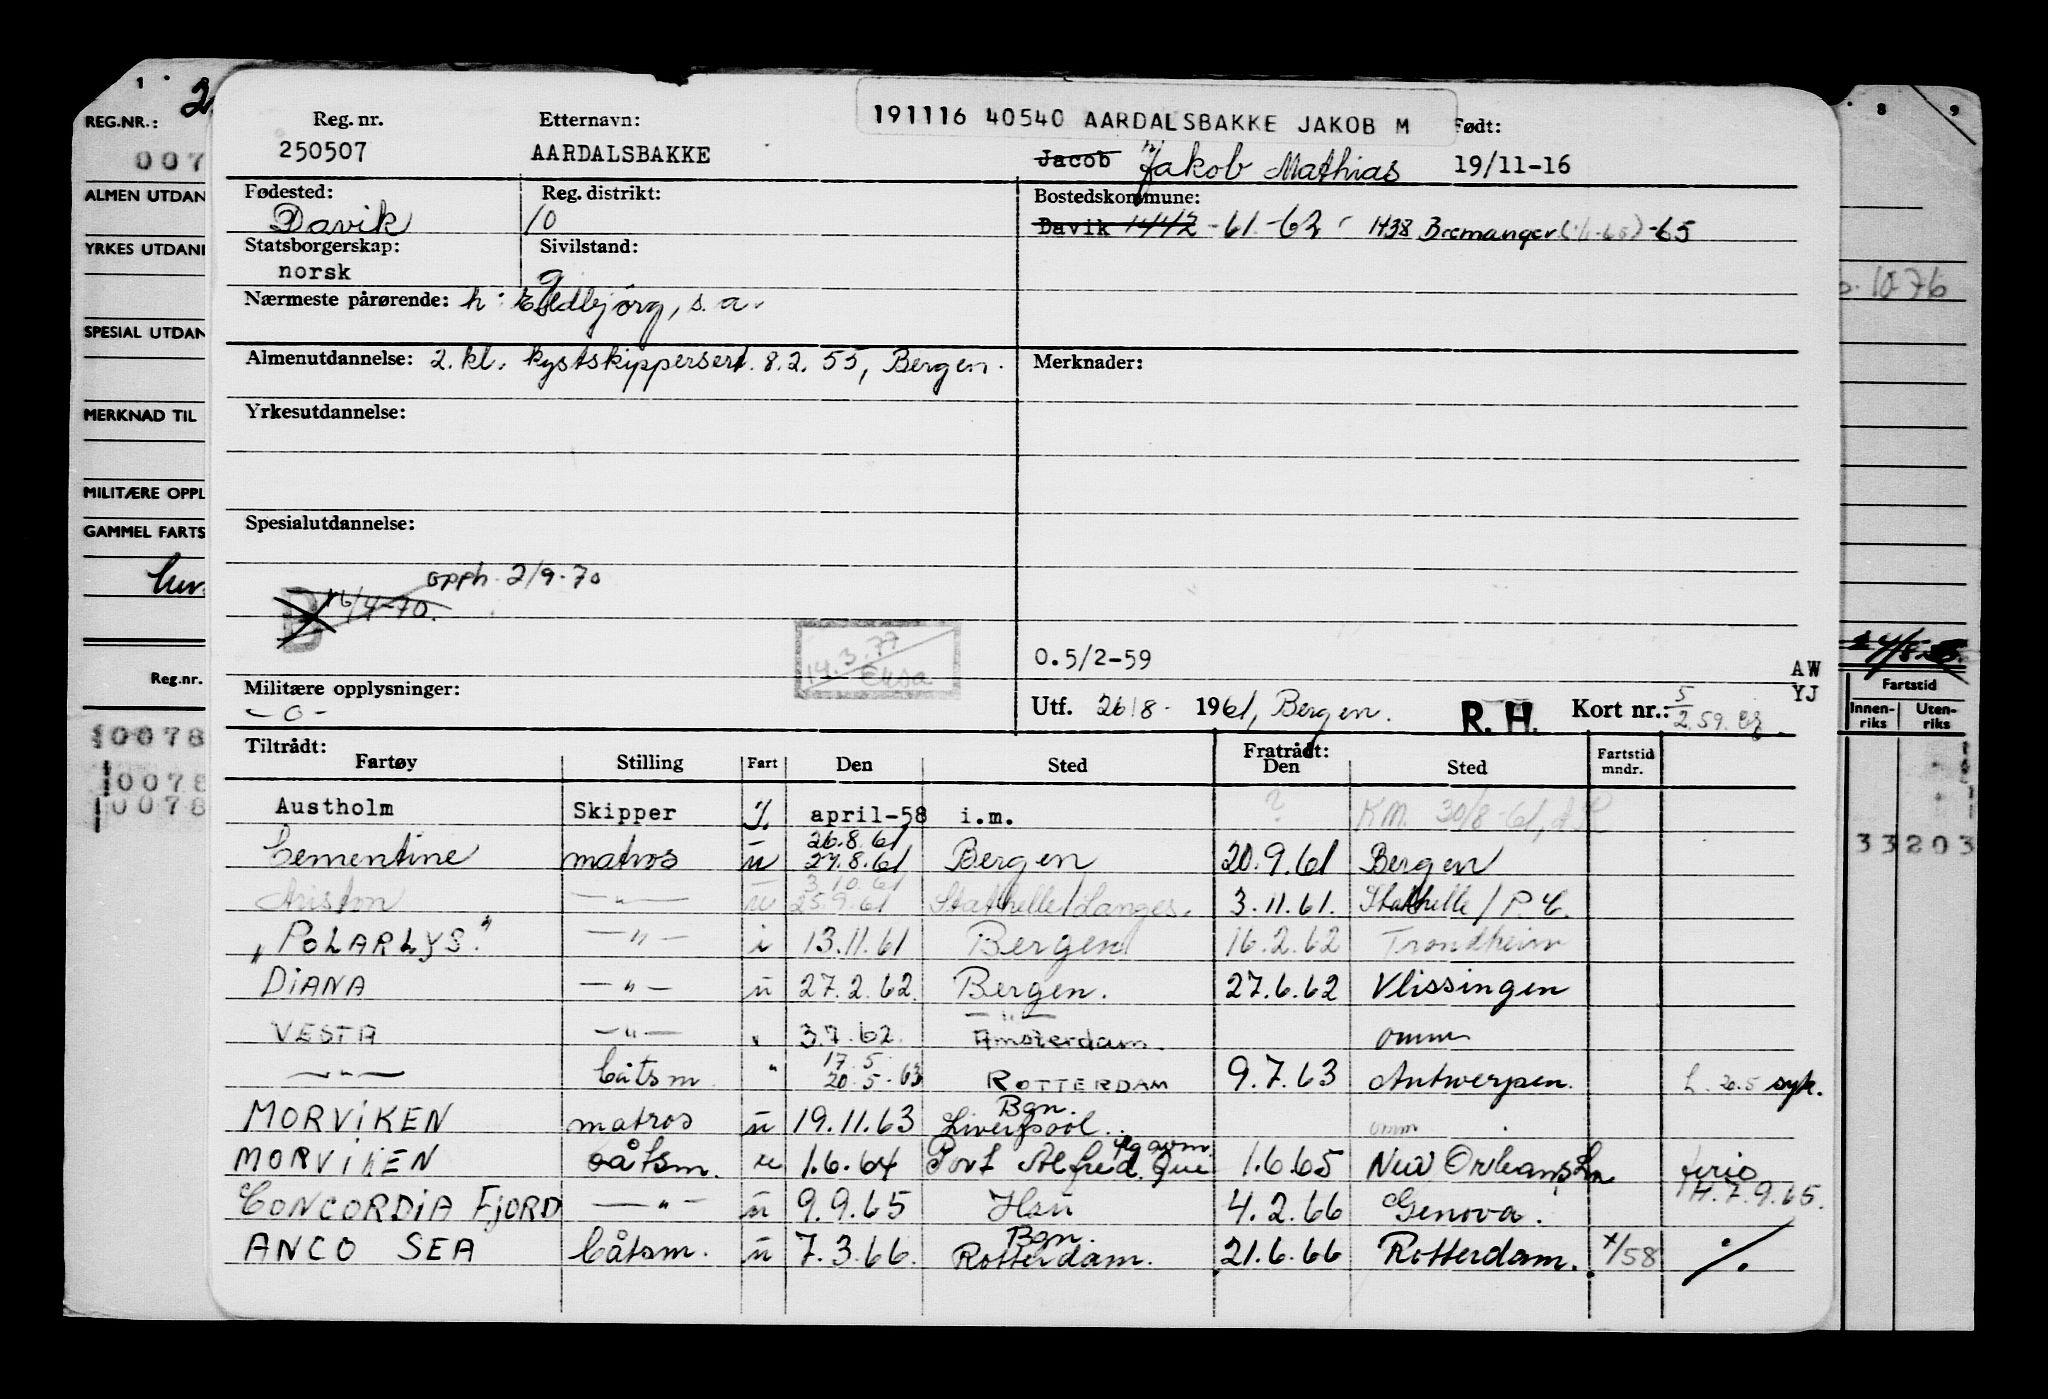 191116 40540 AARDALSBAKKE JAKOB M
Reg. nr. Etternavn: Født:
250507 AARDALSBAKKE Jacob Jakob Mathias 19/11-16
Fødested: Reg. distrikt: Bostedskommune:
Davik 10 Davik 1442 -61-62 1438 Bremanger -65
Statsborgerskap: Sivilstand:
norsk g
Nærmeste pårørende: h: Eldbjörg, s.a.
Almenutdannelse: 2. kl. kystskippersert. 8.2.55, Bergen. Merknader:
Yrkesutdannelse:
Spesialutdannelse:
opph. 2/9-70
D 16/4-70.
14.3.77
0.5/2-59
AW
YJ
Militære opplysninger:
-0-
Utf. 26/8- 1961, Bergen. R. H. Kort nr.: 5/2.59.
Tiltrådt: Fratrådt:
Fartøy Stilling Fart Den Sted Den Sted Fartstid mndr.
Austholm Skipper april-58 i.m. ? KM. 30/8-61,
26.8.61
Cementine matros u 27.8.61 Bergen 20.9.61 Bergen
3.10.61
Ariston —"— u 25.9.61 Stathelle/Langes. 3.11.61. Stathelle/P.G.
"POLARLYS." —"— i 13.11.61 Bergen 16.2.62 Trondheim
DIANA —"— u 27.2.62. Bergen. 27.6.62 Vlissingen
—"—
VESTA —"— " 3.7.62. Amsterdam. omm
17.5.
—"— båtsm. " 20.5.63 ROTTERDAM 9.7.63 Antwerpen. h. 20.5 syk.
Bgn.
MORVIKEN matros u 19.11.63 Liverpool. omm
MORVIKEN båtsm. u 1.6.64 Port Alfred. Que 1.6.65 New Orleans, ferie
CONCORDIA FJORD —"— u 9.9.65 Hsu 4.2.66 Genova. H. 7.9.65.
Bgn.
ANCO SEA båtsm. u 7.3.66. Rotterdam. 21.6.66 Rotterdam. x/58 ./.
1
REG.NR.:
007
ALMEN UTDAN
YRKES UTDAN
SPESIAL UTDAN
MERKNAD TIL
MILITÆRE OPPL
GAMMEL FARTS
Reg.nr.
0078
0078
0078
8 9
10 76
Fartstid
Innenriks Utenriks
33203